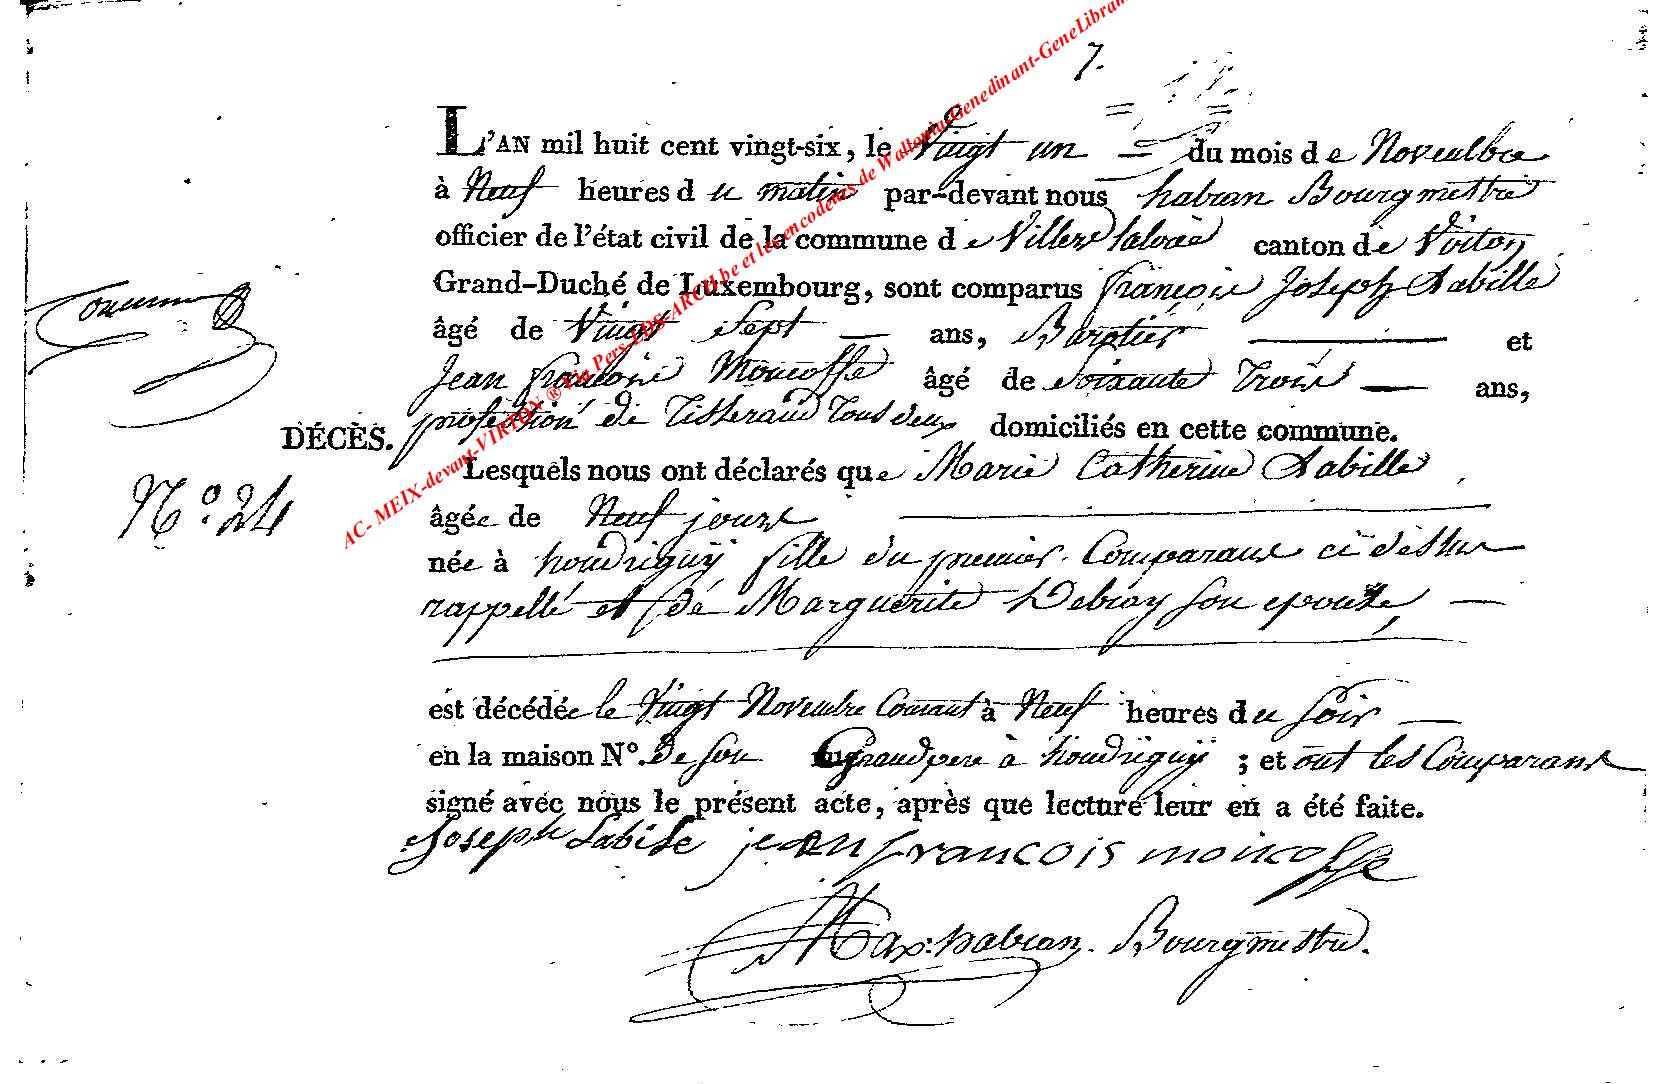 7.
L'AN mil huit cent vingt-six, le Vingt un du mois de Novembre
à Neuf heures du matin par-devant nous habran Bourgmestre
officier de l'état civil de la commune de Villers laloue canton de Virton
Grand-Duché de Luxembourg, sont comparus françois Joseph Labille
âgé de Vingt Sept ans, et
Jean françois Moncoffe âgé de Soixante Trois ans,
profession de Tisserand Tous deux domiciliés en cette commune.
DÉCÈS.
Lesquels nous ont déclarés que Marie Catherine Labille
N.o 24
âgée de Neuf jours
née à houdriguÿ fille du premier Comparant ci dessus
rappellé et de Marguerite Debray son epouse,
est décédée le Vingt Novembre Courant à Neuf heures du soir
en la maison No. de son grand pere à houdriguÿ ; et ont les Comparans
signé avec nous le présent acte, après que lecture leur en a été faite.
Joseph Labile jean francois moncoffe
Max. habran. Bourgmestre.
AC- MEIX-devant-VIRTON ® via Pers-LDS-ARCH.be et les encodeurs de Wallonia-Genedinant-GeneLibran